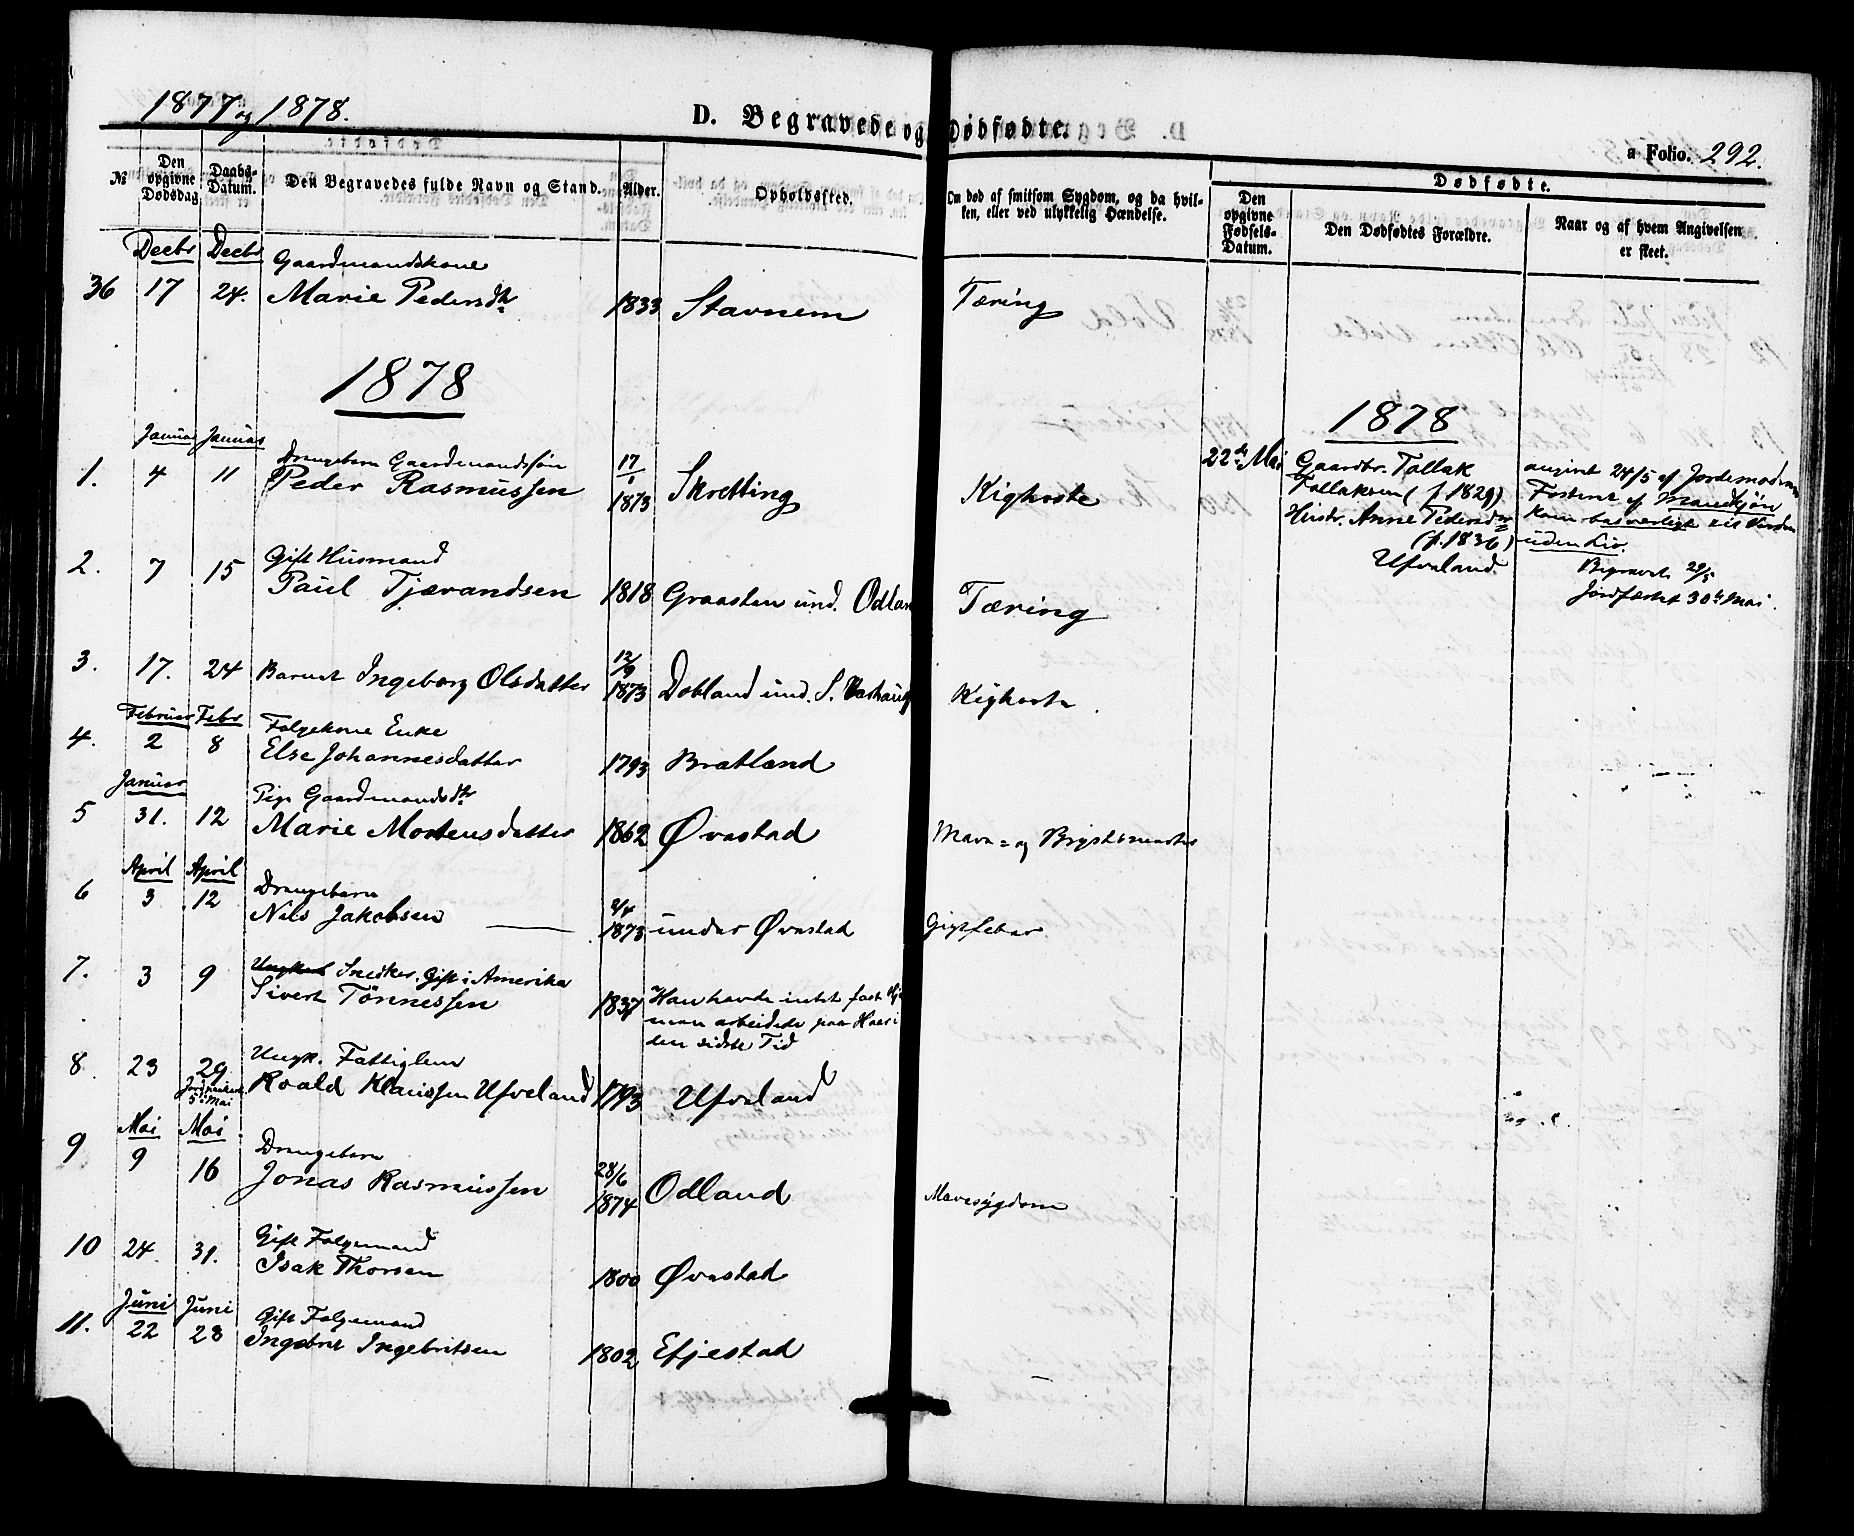 1877 og 1878.
D. Begravede og Dødfødte.
a Folio. 292.
№
Den opgivne Dødsdag
Daabs-Datum.
Den Begravedes fulde Navn og Stand.
Alder.
Opholdssted.
Om død af smitsom Sygdom, og da hvilken, eller ved ulykkelig Hændelse.
Dødfødte.
Den opgivne Fødsels-Datum.
Den Dødfødtes Forældre.
Naar og af hvem Angivelsen er skeet.
Decbr Decbr Gaardmandskone
36 17 24. Marie Pedersdtr 1833 Stavnem Tæring
1878
Januar Januar Drengebarn Gaardmandssøn 17/1
1. 4 11 Peder Rasmussen 1873 Skretting Kighoste
2. 7 15 Gift Husmand
Paul Tjærandsen 1818 Graasten und. Odland Tæring
3. 17. 24 Barnet Ingeborg Olsdatter 12/9 1873 Dobland und. S. Kighoste
Februar Febr Folgekone Enke
4. 2 8 Else Johannesdatter 1793 Bratland
Januar Pige Gaardmandsdtr
5 31. 12 Marie Mortensdatter 1862 Øvestad Mave- og
April April Drengebarn
6 3 12 Nils Jakobsen 2/4 1873 under Øvestad Gigtfeber
7. 3 9 Ungkarl Snedker. Gift i Amerika
Sivert Tønnessen 1837 Han havde intet fast
men arbeidede paa Haar i
den sidste Tid
8. 23 29 Ungk. Fattiglem
5 Mai Roald Klaussen Ufveland 1793 Ufveland
Mai Mai Drengebarn
9 9 16 Jonas Rasmussen 28/6 1874 Odland Mavesygdom
10 24. 31. Gift Folgemand
Isak Thorsen 1800 Øvestad
Juni Juni Gift Folgemand
11. 22 28 Ingebret Ingebritsen 1802 Efjestad
1878
22de Mai Gaardbr. Tollak
Tollaksen (f. 1829)
Hustr. Anne Pedersdtr
(f. 1836)
Ufveland.
angivet 24/5 af Jordemoderen
Fosteret af Mandkjøn
kom besværligt til Verden
uden Liv.
Begravet 29/5
Jordfæstet 30te Mai.